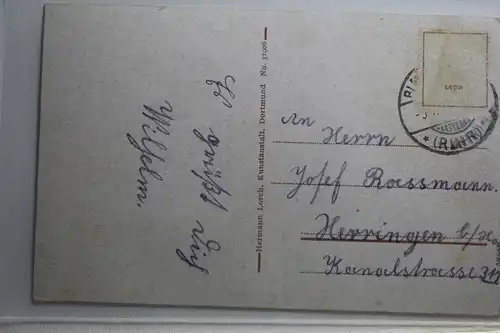 Es grüßt Dich
Wilhelm.
Hermann Lorch, Kunstanstalt, Dortmund No. 51906
An Herrn
Josef Rassmann.
Herringen b/H.
Kanalstrasse 311
(RUHR)